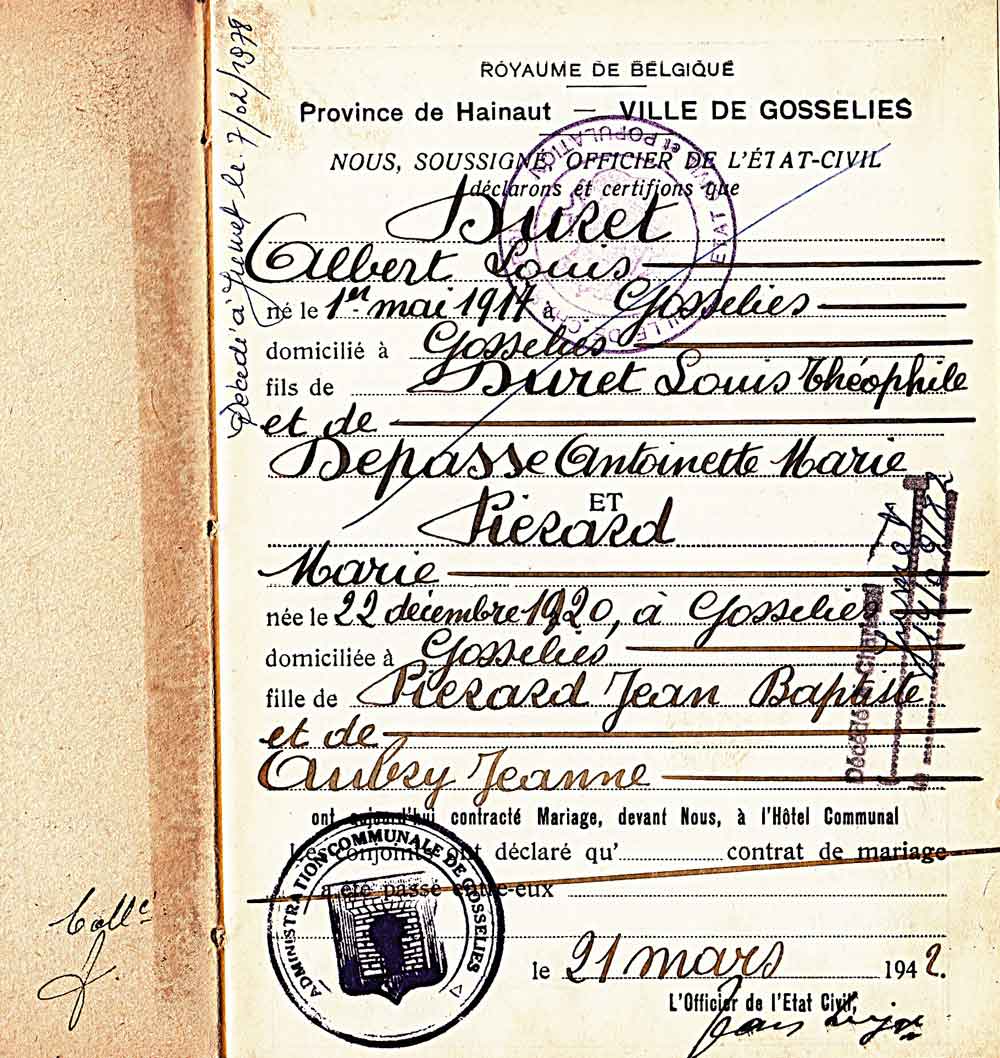 ROYAUME DE BELGIQUE
Province de Hainaut — VILLE DE GOSSELIES
NOUS, SOUSSIGNÉ, OFFICIER DE L'ÉTAT-CIVIL
déclarons et certifions que
Duret
Albert Louis
né le 1er mai 1914 à Gosselies
domicilié à Gosselies
fils de Duret Louis Théophile
et de
Depasse Antoinette Marie
ET
Piérard
Marie
née le 22 décembre 1920, à Gosselies
domiciliée à Gosselies
fille de Piérard Jean Baptiste
et de
Aubry Jeanne
ont aujourd'hui contracté Mariage, devant Nous, à l'Hôtel Communal
Les conjoints ont déclaré qu' contrat de mariage
a été passé entre-eux
le 21 mars 1942.
L'Officier de l'Etat Civil,
ADMINISTRATION COMMUNALE DE GOSSELIES
ETAT CIVIL et POPULATION
VILLE DE
Décédé à Jumet le 7/02/1978
Décédé à
Jumet
le
Collé